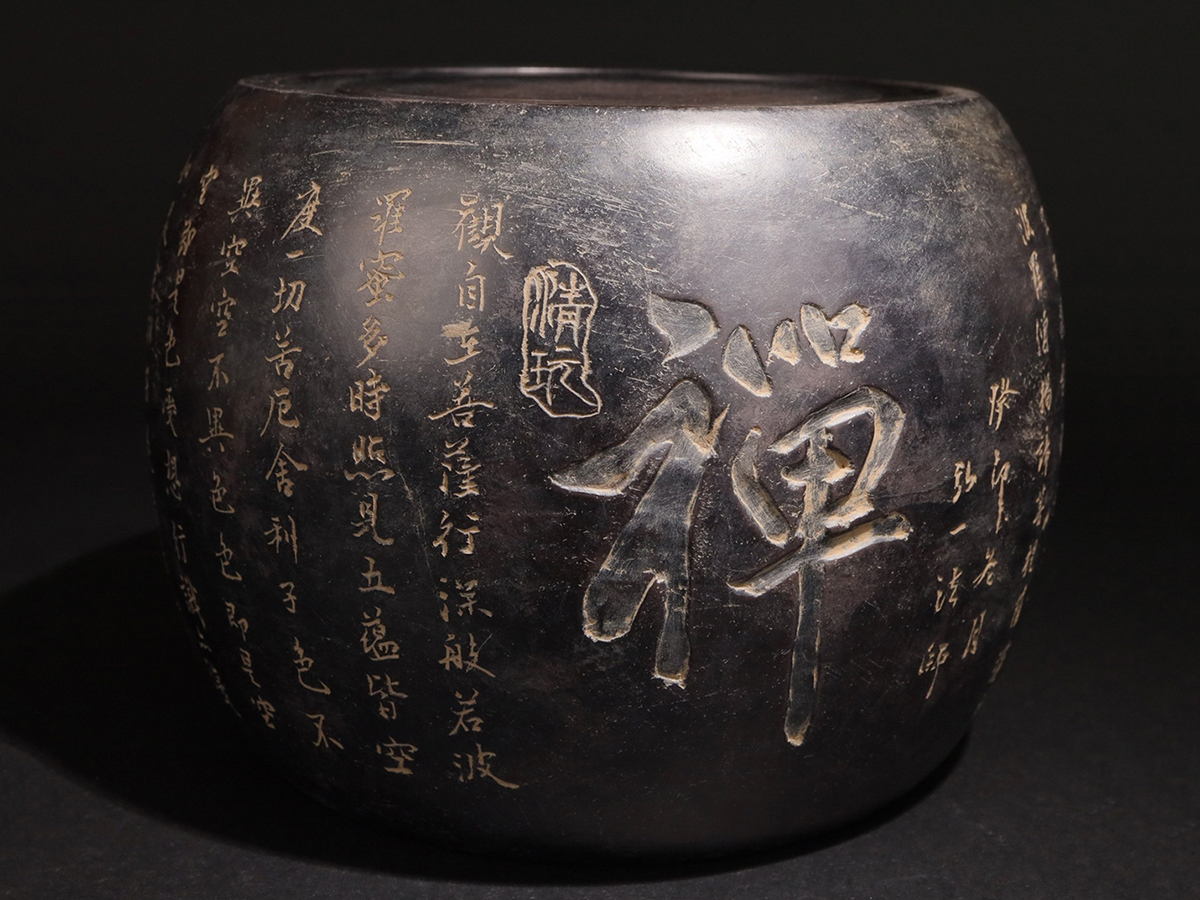 癸卯冬月
弘一法師
禪
清玩
觀自在菩薩行深般若波
羅蜜多時照見五蘊皆空
度一切苦厄舍利子色不
異空空不異色色即是空
空即是色受想行識亦